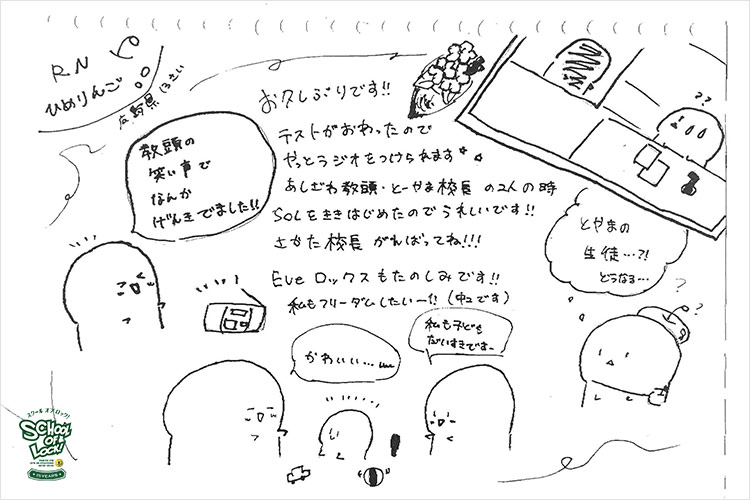 RN
ひめりんご
長野県 13さい
お久しぶりです!!
テストがおわったので
やっとラジオをつけられます
あしざわ教頭・とーやま校長 の2人の時
SOLをききはじめたのでうれしいです!!
さかた校長 がんばってね!!!
Eve ロックスもたのしみです!!
私もフリーダムしたいー!! (中2です)
教頭の
笑い声で
なんか
げんきでました!!
??
とやまの
生徒…?!
どうなる…
? ?
かわいい…
私も子ども
だいすきですー
スクール オブ ロック!
SCHOOL
OF
LOCK!
15 YEARS